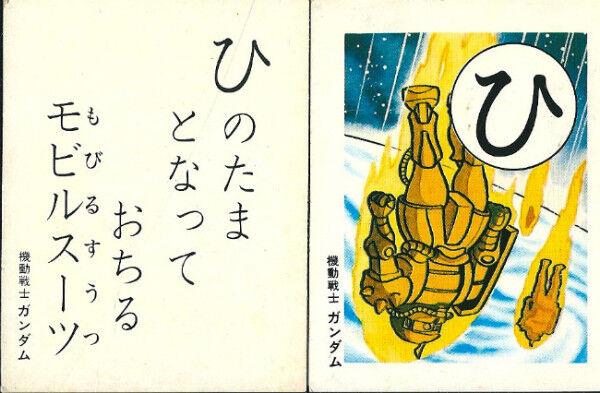 ひのたま
となって
おちる
モビルスーツ
もびるすうつ
機動戦士 ガンダム
ひ
機動戦士 ガンダム